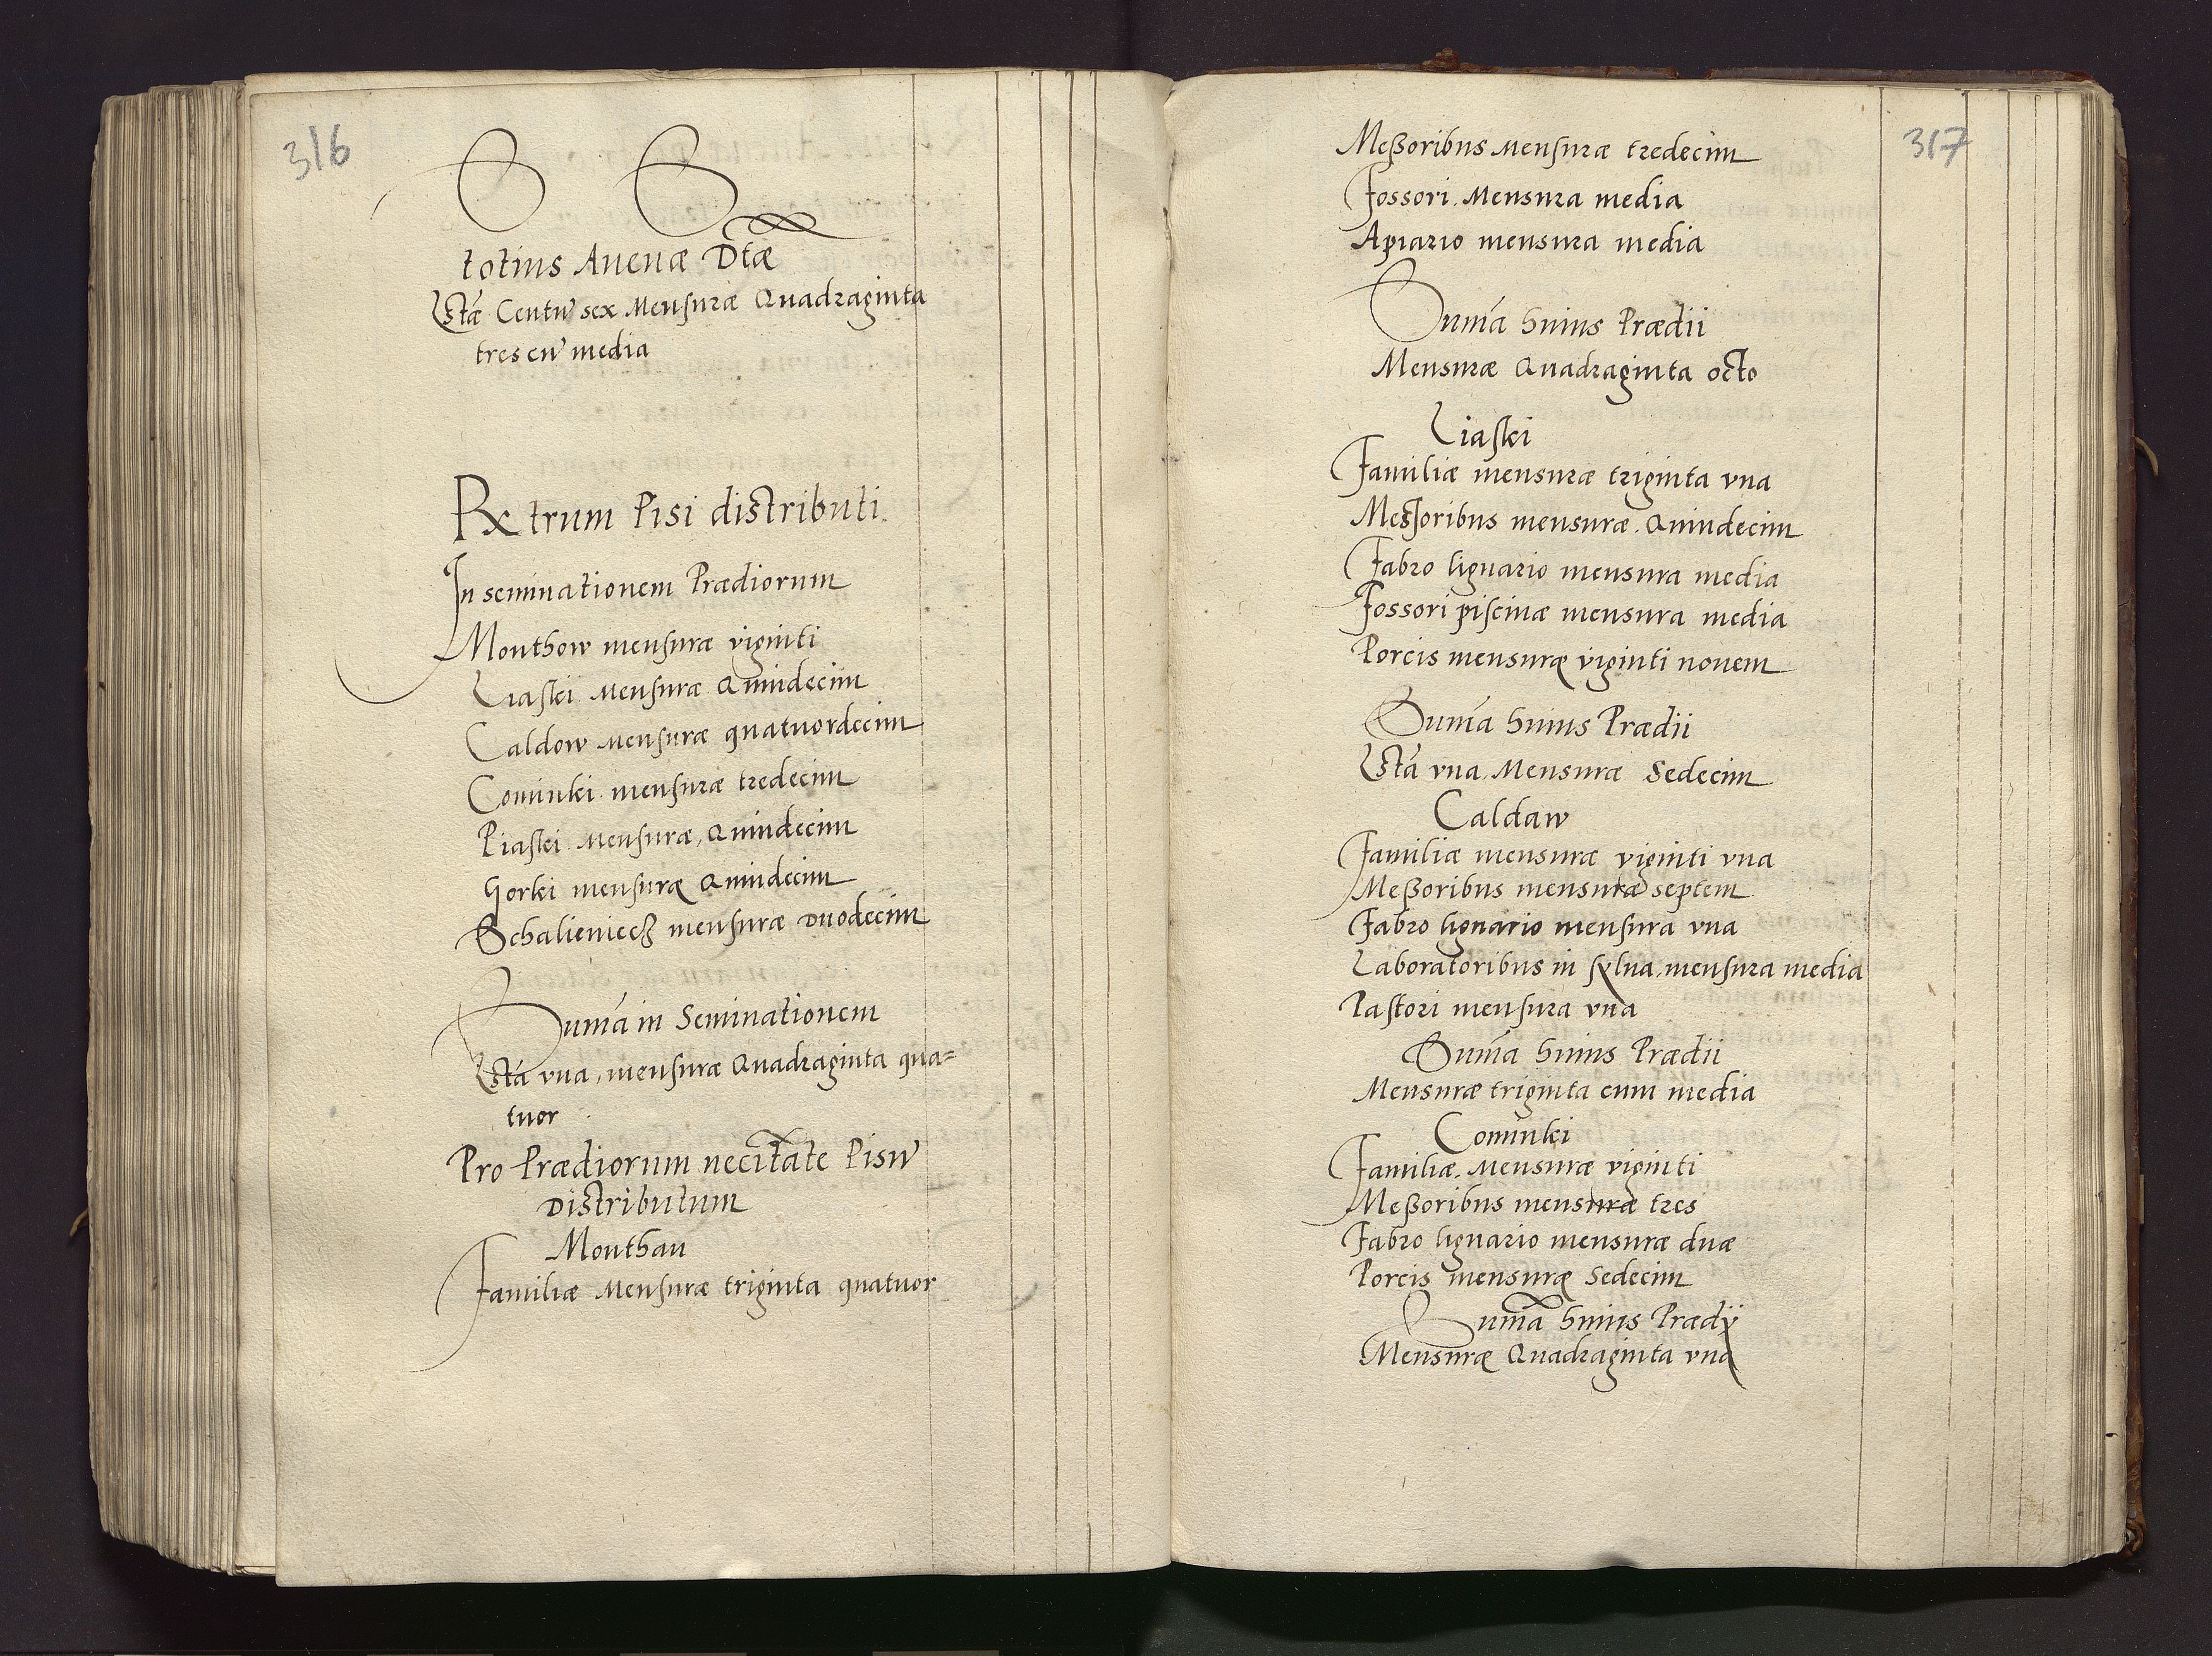 316
S S
totius Auenæ Dtæ
Lstæ Centũ sex Mensuræ Quadraginta
tres cũ media
Rx trum Pisi distributi
In seminationem Prædiorum
Monthow mensuræ viginti
Liaski Mensuræ Quindecim
Caldow Mensuræ quatuordecim
Cominki mensuræ tredecim
Piaski Mensuræ, Quindecim
Gorki mensuræ Quindecim
Schalieniecz mensuræ Duodecim
Suma in Seminationem
Lsta vna, mensuræ Quadraginta qua=
tuor
Pro Prædiorum necitate Pisũ
Distributum
Monthau
Familiæ Mensuræ triginta quatuor
317
Meßoribus Mensuræ tredecim
Fossori, Mensura media
Apiario mensura media
Suma huius Prædii
Mensuræ Quadraginta octo
Liaski
Familiæ mensuræ triginta vna
Messoribus mensuræ Quindecim
Fabro lignario mensura media
Fossori piscinæ mensura media
Porcis mensuræ viginti nouem
Suma huius Prædii
Lsta vna, Mensuræ Sedecim
Caldaw
Familiæ mensuræ viginti vna
Meßoribus mensuræ septem
Fabro lignario mensura vna
Laboratoribus in sylua, mensura media
Pastori mensura vna
Suma huius Prædii
Mensuræ triginta cum media
Cominki
Familiæ Mensuræ viginti
Meßoribus mensuræ tres
Fabro lignario mensuræ duæ
Porcis mensuræ Sedecim
Suma huius Prædÿ
Mensuræ Quadraginta vna